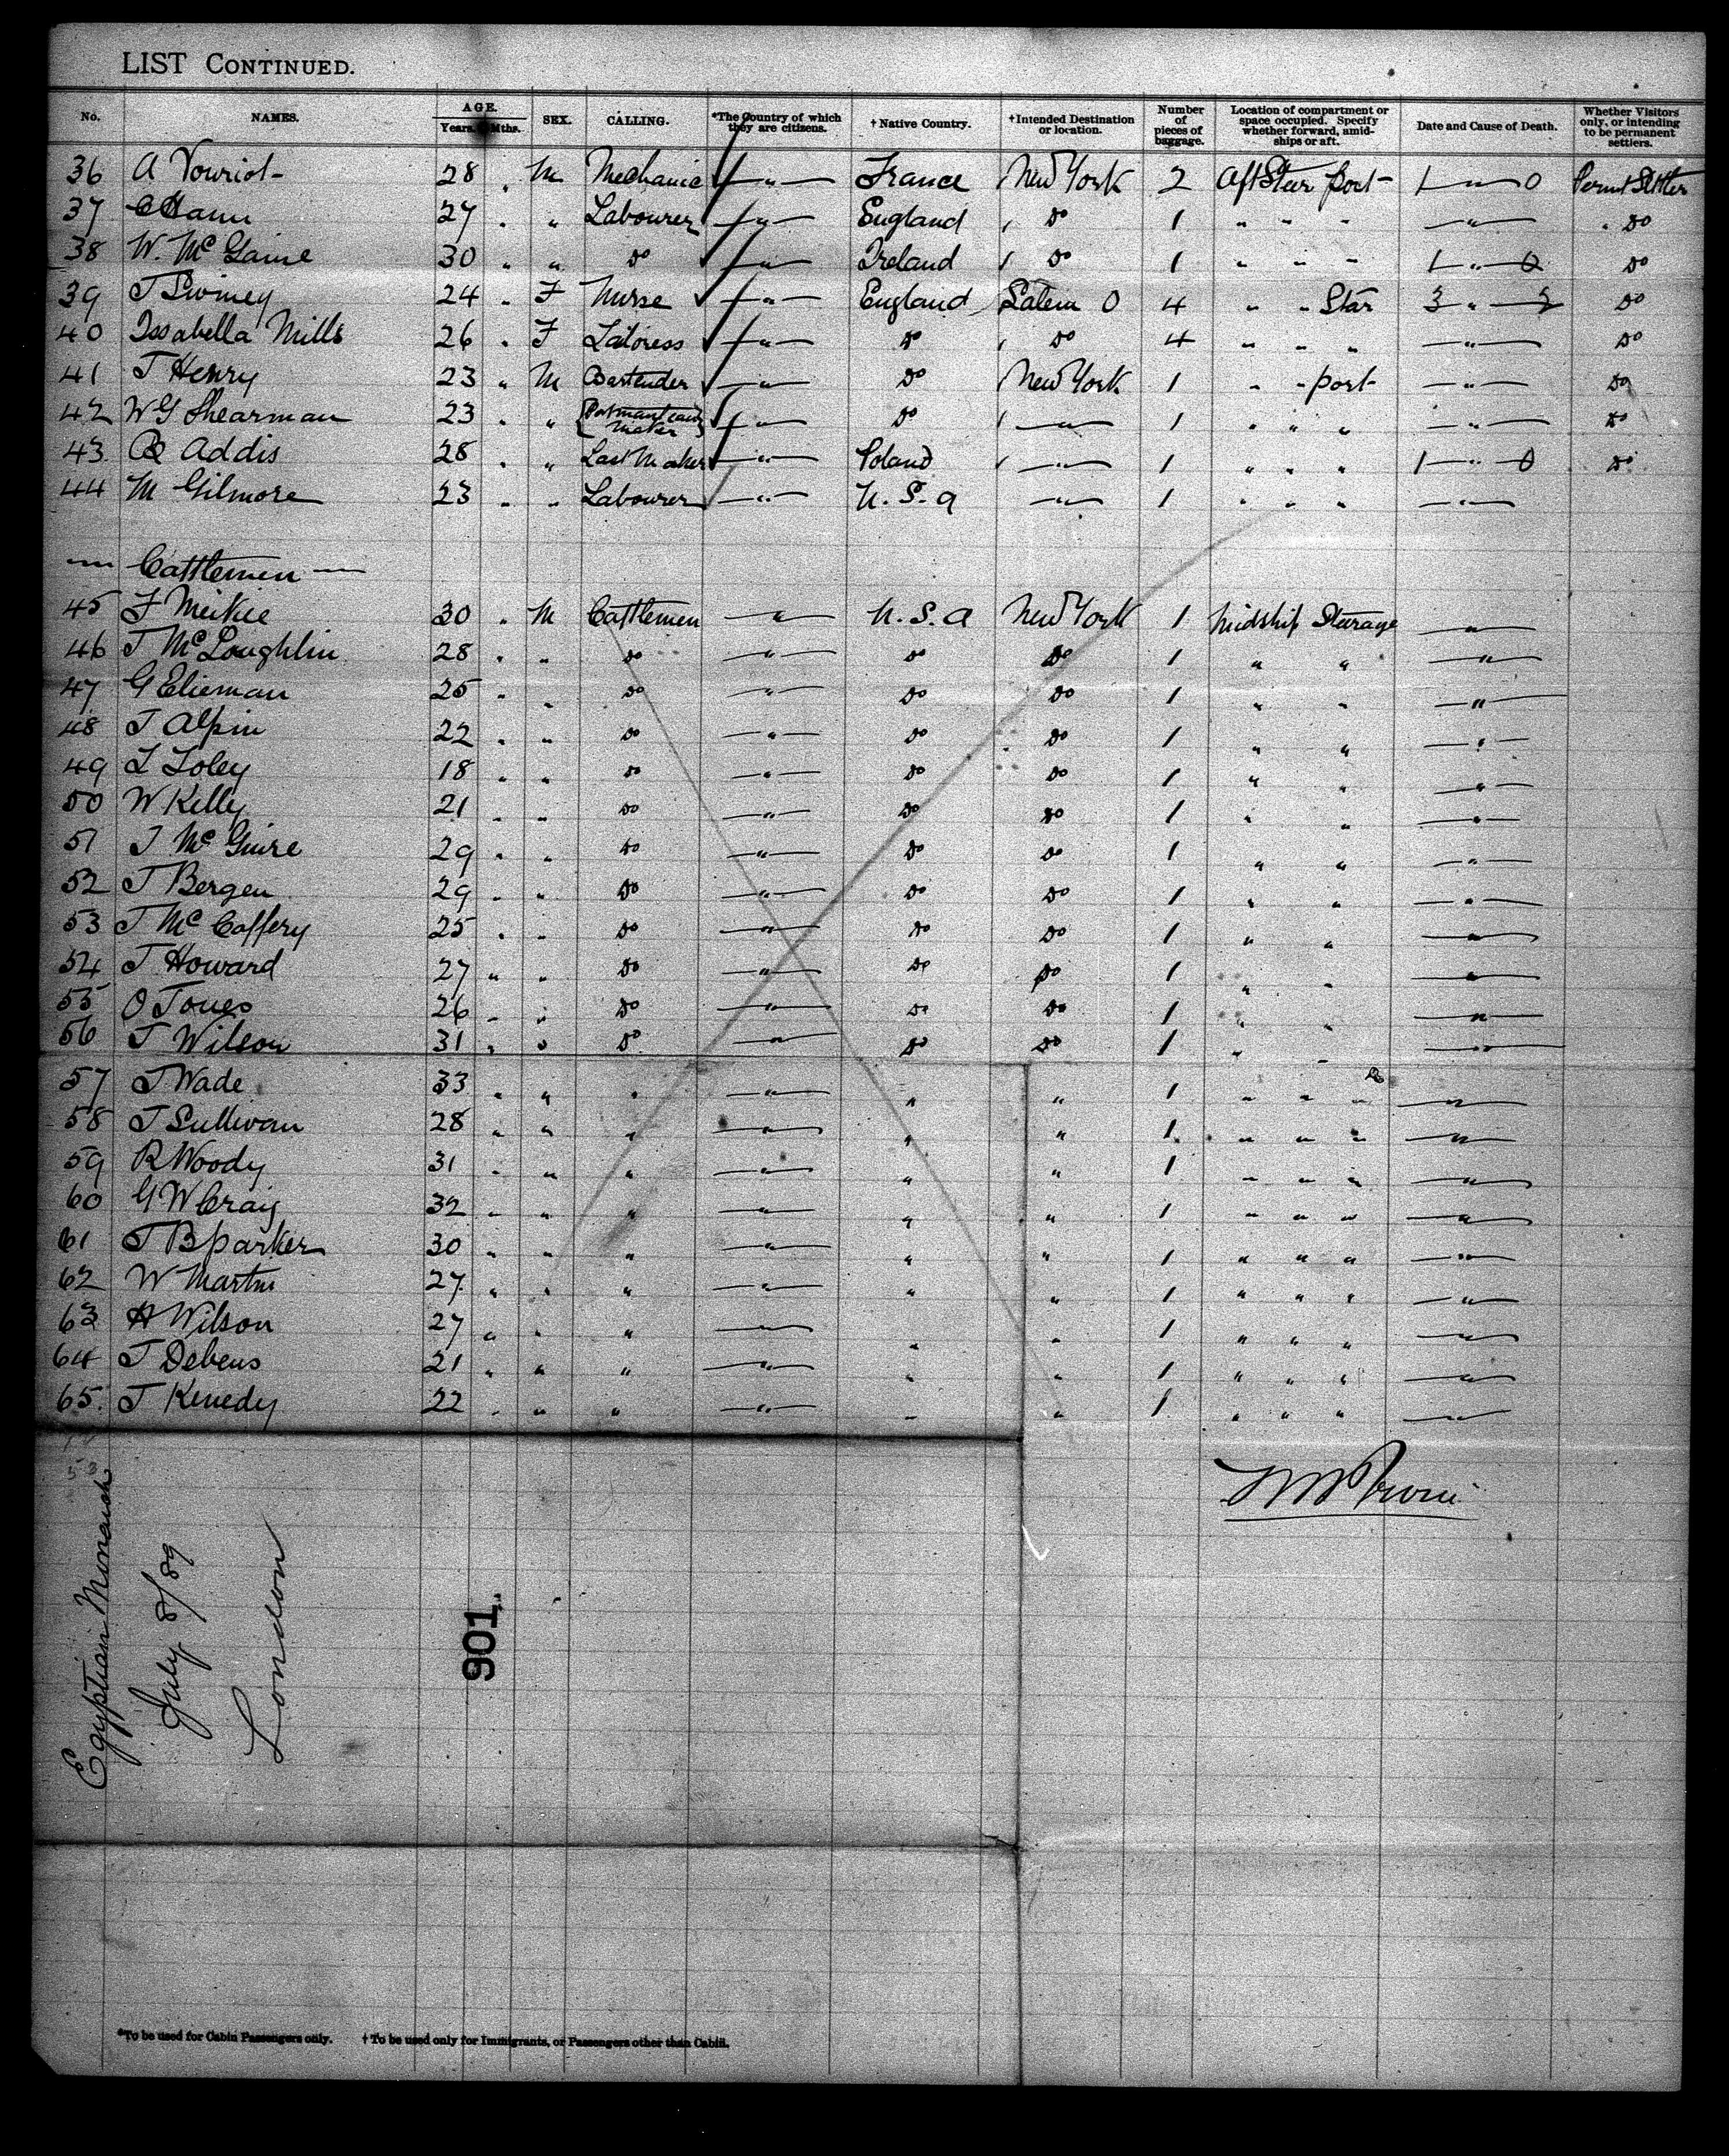 LIST CONTINUED.
No. NAMES. AGE. Years. Mths. SEX. CALLING. *The Country of which they are citizens. † Native Country. † Intended Destination or location. Number of pieces of baggage. Location of compartment or space occupied. Specify whether forward, amid-ships or aft. Date and Cause of Death. Whether Visitors only, or intending to be permanent settlers.
36 A Vouriot 28 " M Mechanic — " — France New York 2 Aft Steer port 1 — " — 0 Permt Settler
37 27 " " Labourer — " — England " Do 1 " " " — " — " Do
38 W. Mc Gaine 30 " " Do — " — Ireland " Do 1 " " " 1 — " — 0 Do
39 J Swiney 24 " F Nurse — " — England Salem O 4 " " Star 3 — " — Do
40 Issabella Mills 26 " F — " — Do " Do 4 " " " — " — Do
41 J Henry 23 " M Bartender — " — Do New York 1 " " port — " — Do
42 W G Shearman 23 " " maker — " — Do — 1 " " " — " — Do
43 Addis 28 " " Last Maker — " — Poland — " — 1 " " " 1 — " — 0 Do
44 M Gilmore 23 " " Labourer — " — U. S. a — " — 1 " " " — " —
— Cattlemen —
45 F Meikie 30 " M Cattlemen — " — U. S. a New York 1 Midship Stearage — " —
46 J Mc Loughlin 28 " " Do — " — Do Do 1 " " — " —
47 G Elieman 25 " " Do — " — Do Do 1 " " — " —
48 J Alpin 22 " " Do — " — Do " Do 1 " " — " —
49 L Foley 18 " " Do — " — Do Do 1 " " — " —
50 W Kelly 21 " " Do — " — Do Do 1 " " — " —
51 J Mc Guire 29 " " Do — " — Do Do 1 " " — " —
52 J Bergen 29 " " Do — " — Do Do 1 " " — " —
53 J Mc Caffery 25 " " Do — " — Do Do 1 " " — " —
54 J Howard 27 " " Do — " — Do Do 1 " " — " —
55 O Jones 26 " " Do — " — Do Do 1 " " — " —
56 J Wilson 31 " " Do — " — Do Do 1 " " — " —
57 J Wade 33 " " " — " — " " 1 " " " — " —
58 J Sullivan 28 " " " — " — " " 1 " " " — " —
59 R Woody 31 " " " — " — " " 1 " " " — " —
60 G W Craig 32 " " " — " — " " 1 " " " — " —
61 J B parker 30 " " " — " — " " 1 " " " — " —
62 W Martin 27 " " " — " — " " 1 " " " — " —
63 H Wilson 27 " " " — " — " " 1 " " " — " —
64 J Debens 21 " " " — " — " " 1 " " " — " —
65. J Kenedy 22 " " " — " — " " 1 " " " — " —
Egyptian Monarch
July 8/89
London
901
*To be used for Cabin Passengers only. † To be used only for Immigrants, or Passengers other than Cabin.